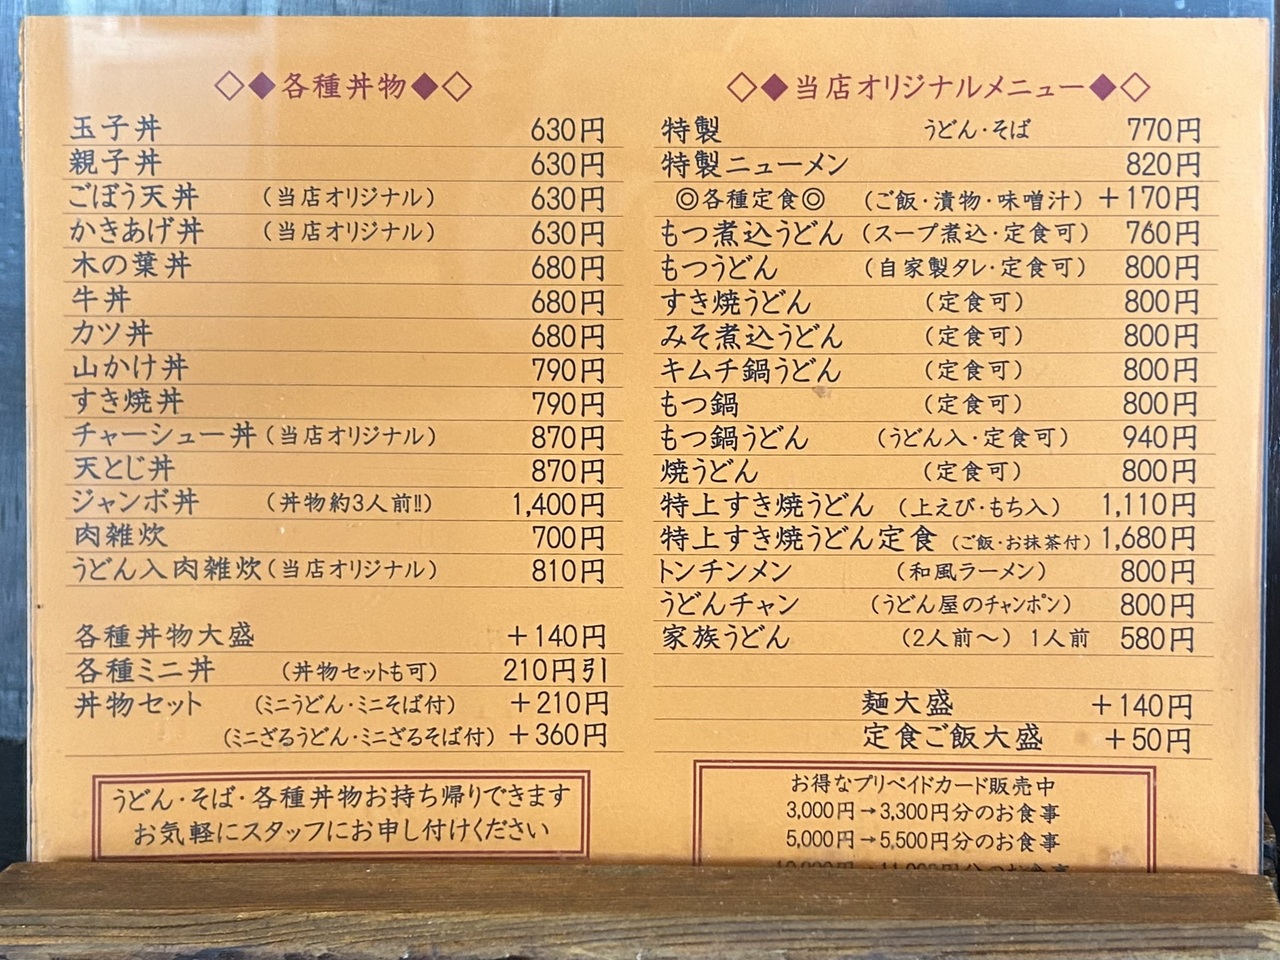 ◇◆各種丼物◆◇
玉子丼 630円
親子丼 630円
ごぼう天丼 (当店オリジナル) 630円
かきあげ丼 (当店オリジナル) 630円
木の葉丼 680円
牛丼 680円
カツ丼 680円
山かけ丼 790円
すき焼丼 790円
チャーシュー丼(当店オリジナル) 870円
天とじ丼 870円
ジャンボ丼 (丼物約3人前!!) 1,400円
肉雑炊 700円
うどん入肉雑炊(当店オリジナル) 810円
各種丼物大盛 +140円
各種ミニ丼 (丼物セットも可) 210円引
丼物セット (ミニうどん・ミニそば付) +210円
(ミニざるうどん・ミニざるそば付) +360円
うどん・そば・各種丼物お持ち帰りできます
お気軽にスタッフにお申し付けください
◇◆当店オリジナルメニュー◆◇
特製 うどん・そば 770円
特製ニューメン 820円
◎各種定食◎ (ご飯・漬物・味噌汁) +170円
もつ煮込うどん (スープ煮込・定食可) 760円
もつうどん (自家製タレ・定食可) 800円
すき焼うどん (定食可) 800円
みそ煮込うどん (定食可) 800円
キムチ鍋うどん (定食可) 800円
もつ鍋 (定食可) 800円
もつ鍋うどん (うどん入・定食可) 940円
焼うどん (定食可) 800円
特上すき焼うどん (上えび・もち入) 1,110円
特上すき焼うどん定食 (ご飯・お抹茶付) 1,680円
トンチンメン (和風ラーメン) 800円
うどんチャン (うどん屋のチャンポン) 800円
家族うどん (2人前〜) 1人前 580円
麺大盛 +140円
定食ご飯大盛 +50円
お得なプリペイドカード販売中
3,000円→3,300円分のお食事
5,000円→5,500円分のお食事